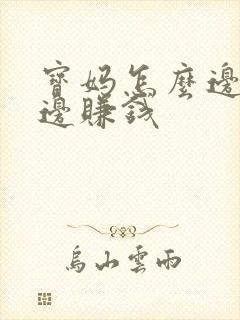 寶媽怎麼邊
邊賺錢
烏山雲雨